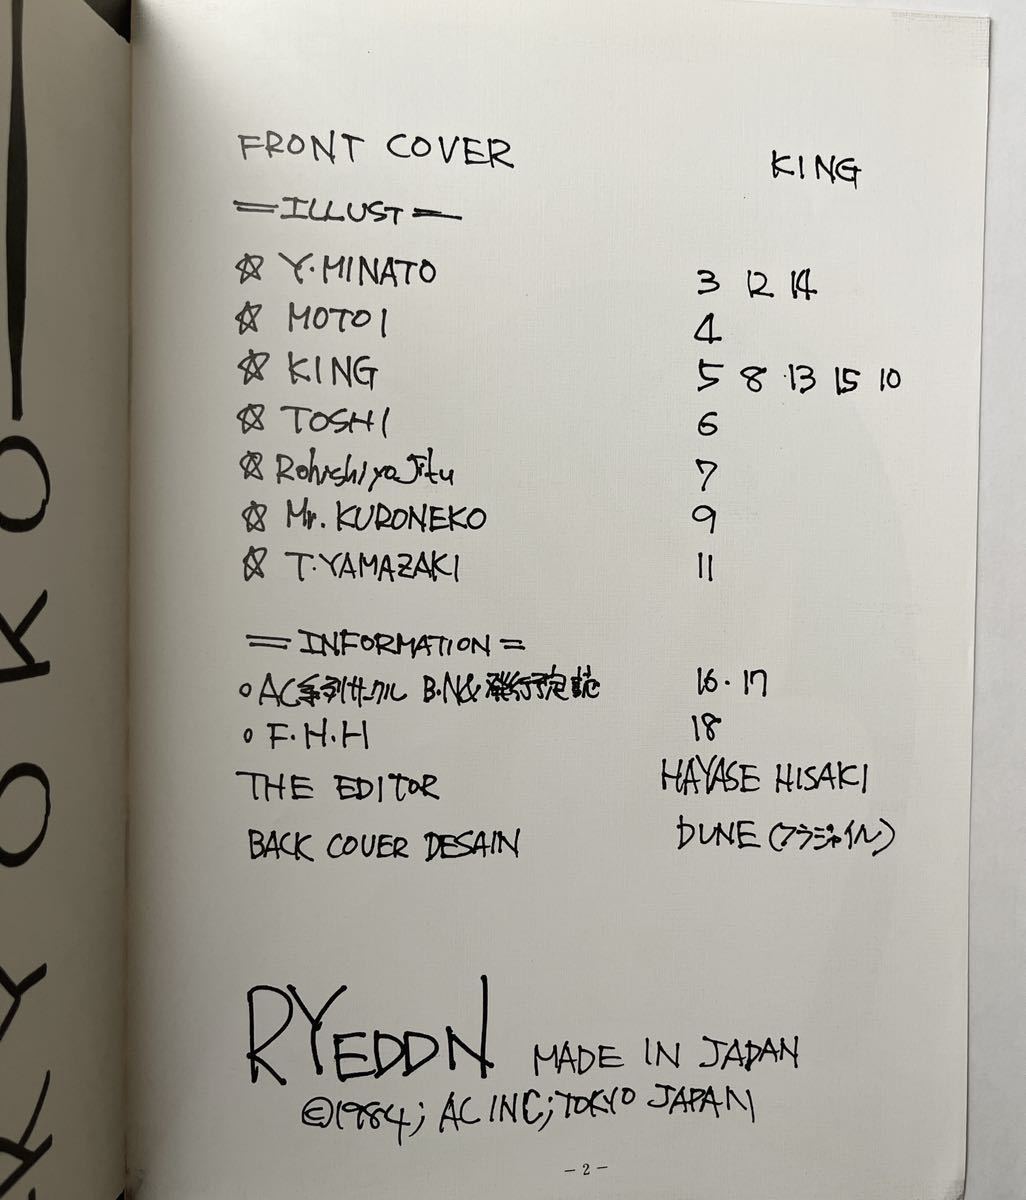 FRONT COVER KING
=ILLUST=
☆ Y·MINATO 3 12 14
☆ MOTOI 4
☆ KING 5 8 13 15 10
☆ TOSHI 6
☆ RohishiyaJitu 7
☆ Mr. KURONEKO 9
☆ T·YAMAZAKI 11
=INFORMATION=
○ AC系列サークル B·N& 発行予定誌 16·17
○ F·H·H 18
THE EDITOR HAYASE HISAKI
BACK COVER DESAIN DUNE (フラジャイル)
RYEDDN MADE IN JAPAN
©1984; AC INC; TOKYO JAPAN
– 2 –
RYOKO